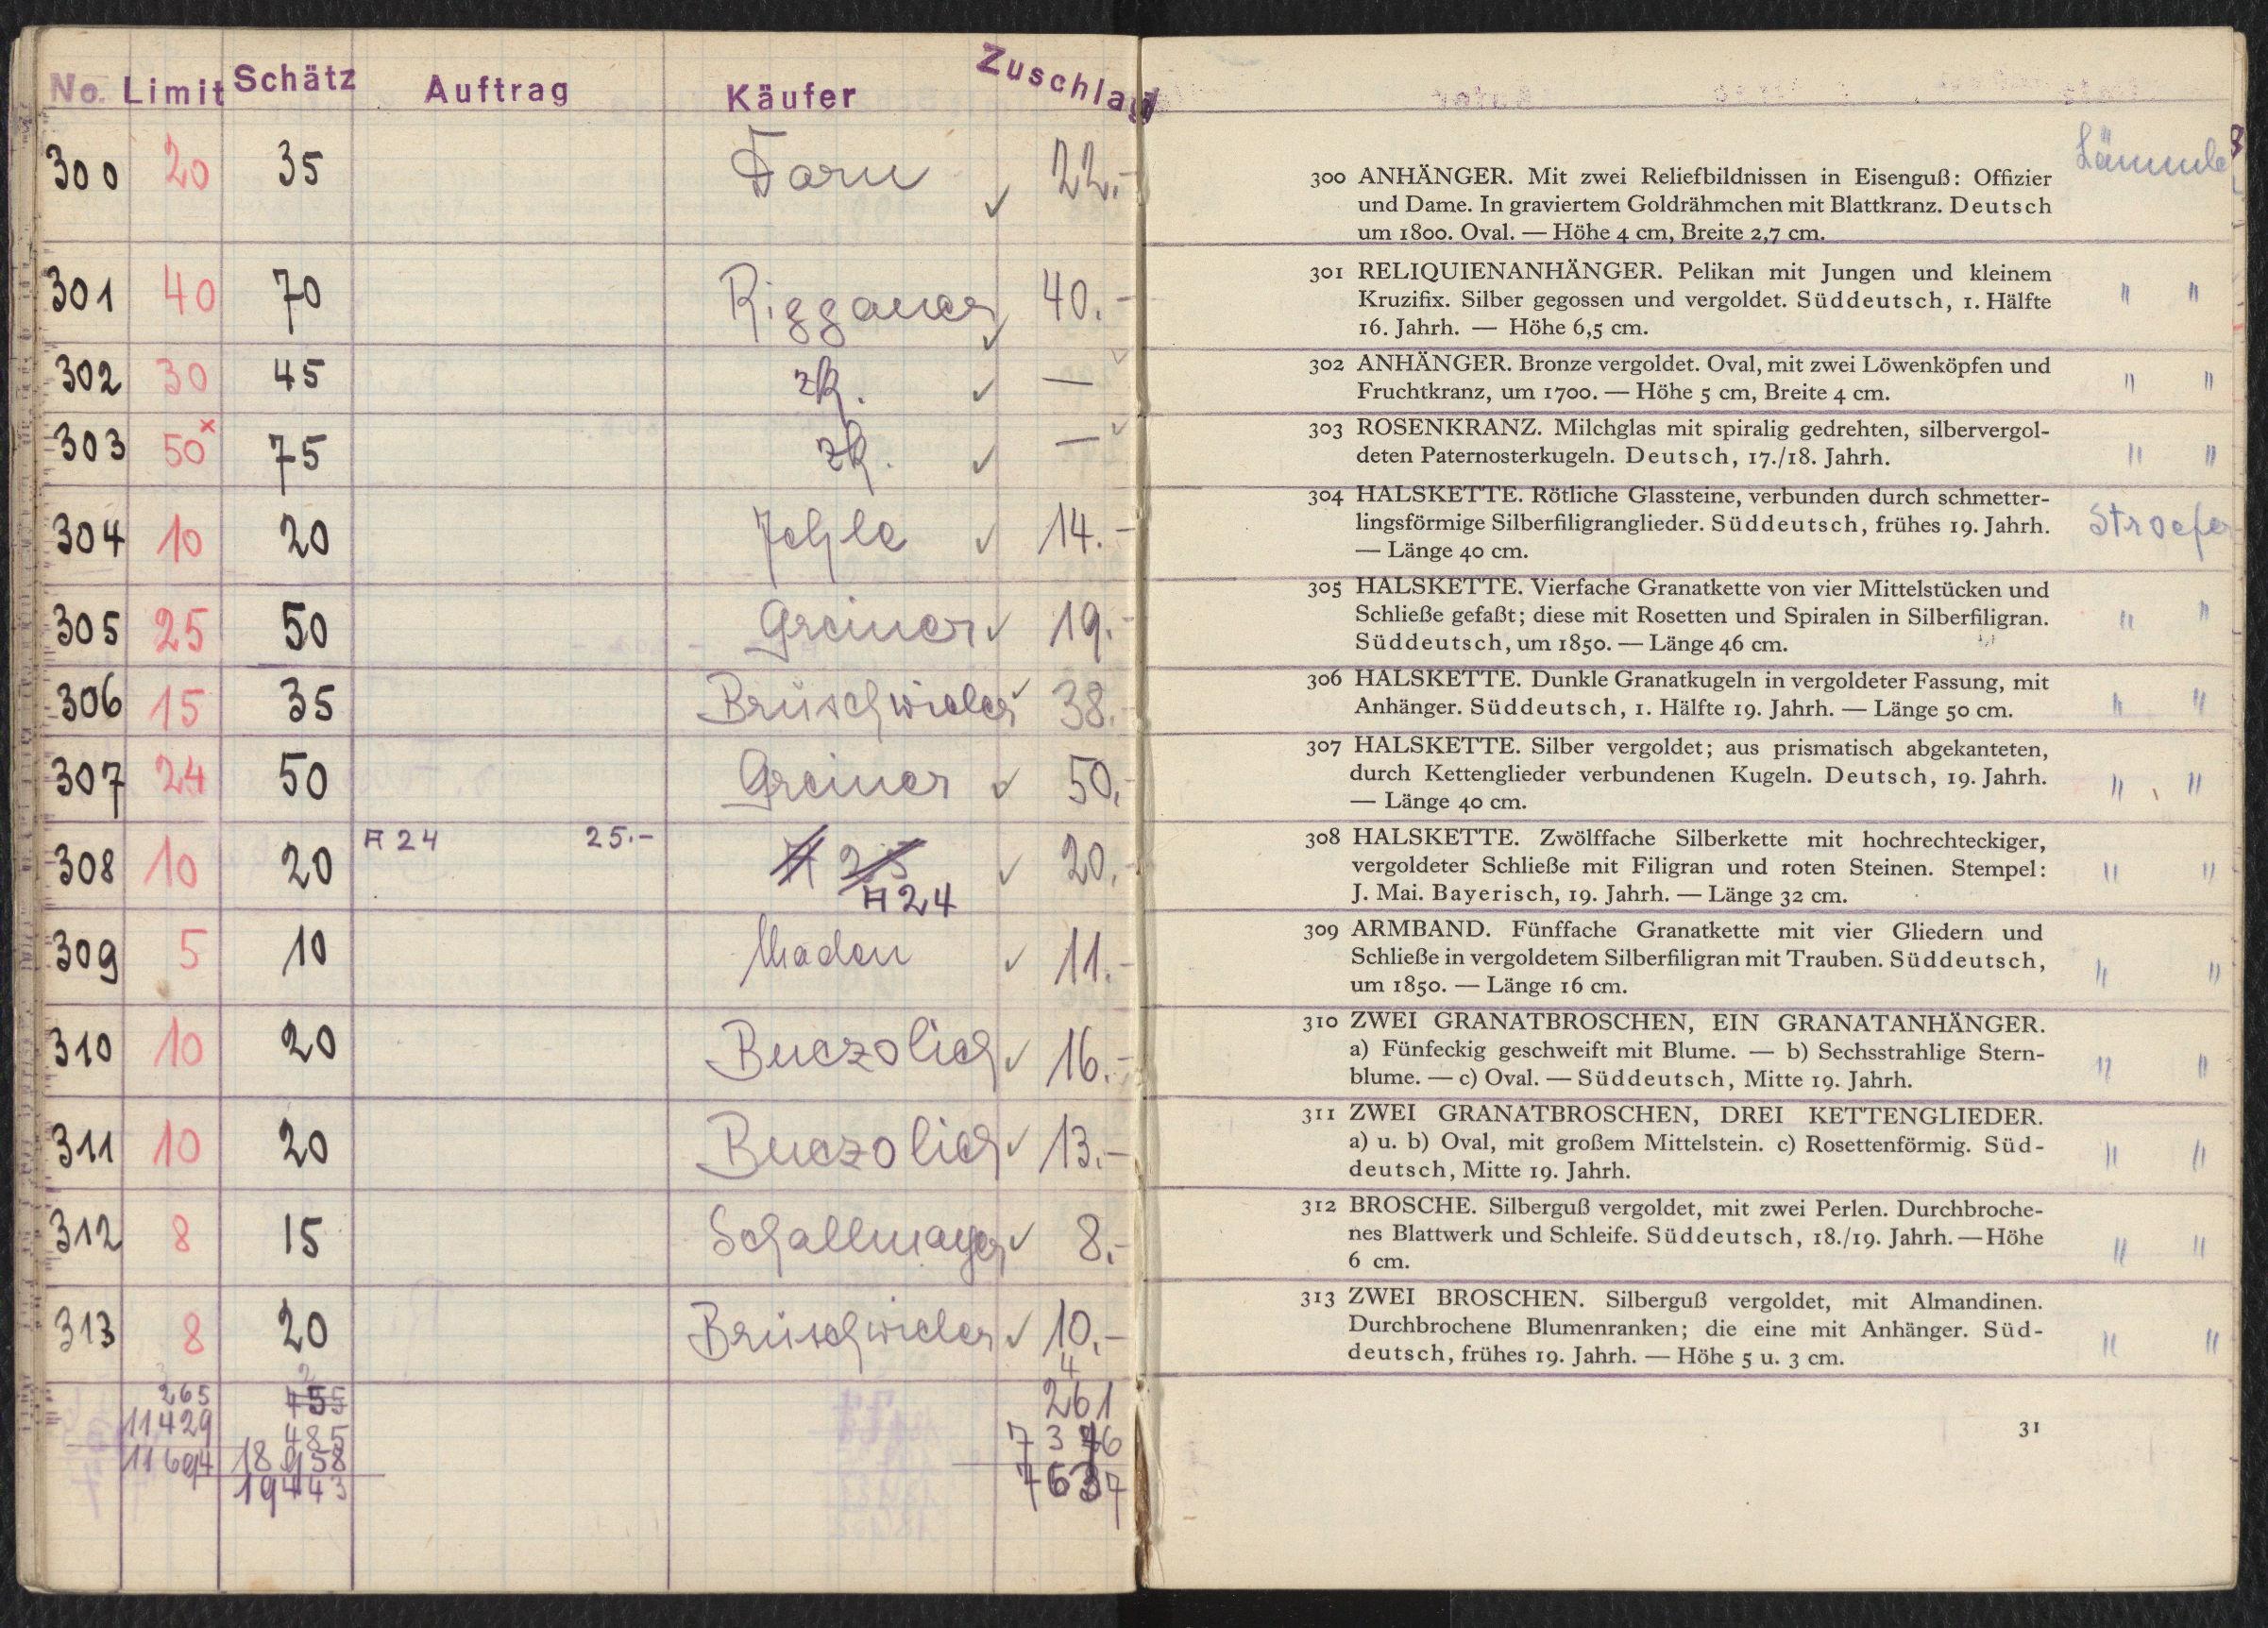 No. Limit Schätz Auftrag Käufer Zuschlag
300 20 35 Dorn ✓ 22.-
301 40 70 Riggauer ✓ 40.-
302 30 45 zk. ✓ —
303 50 x 75 zk. ✓ —
304 10 20 Jehle ✓ 14.-
305 25 50 Greiner ✓ 19.-
306 15 35 Brüschwieler ✓ 38.-
307 24 50 Greiner ✓ 50.-
308 10 20 A 24 25.- A 24 ✓ 20.-
309 5 10 Maden ✓ 11.-
310 10 20 Buczolich ✓ 16.-
311 10 20 Buczolich ✓ 13.-
312 8 15 Schallmayer ✓ 8.-
313 8 20 Brüschwieler ✓ 10.-
265 261
11429 485
11694 18958
19443 7637
Lämmle
300 ANHÄNGER. Mit zwei Reliefbildnissen in Eisenguß: Offizier
und Dame. In graviertem Goldrähmchen mit Blattkranz. Deutsch
um 1800. Oval. — Höhe 4 cm, Breite 2,7 cm.
301 RELIQUIENANHÄNGER. Pelikan mit Jungen und kleinem
Kruzifix. Silber gegossen und vergoldet. Süddeutsch, 1. Hälfte " "
16. Jahrh. — Höhe 6,5 cm.
302 ANHÄNGER. Bronze vergoldet. Oval, mit zwei Löwenköpfen und
Fruchtkranz, um 1700. — Höhe 5 cm, Breite 4 cm. " "
303 ROSENKRANZ. Milchglas mit spiralig gedrehten, silbervergol-
deten Paternosterkugeln. Deutsch, 17./18. Jahrh. " "
304 HALSKETTE. Rötliche Glassteine, verbunden durch schmetter-
lingsförmige Silberfiligranglieder. Süddeutsch, frühes 19. Jahrh. Stroefer
— Länge 40 cm.
305 HALSKETTE. Vierfache Granatkette von vier Mittelstücken und
Schließe gefaßt; diese mit Rosetten und Spiralen in Silberfiligran. " "
Süddeutsch, um 1850. — Länge 46 cm.
306 HALSKETTE. Dunkle Granatkugeln in vergoldeter Fassung, mit
Anhänger. Süddeutsch, 1. Hälfte 19. Jahrh. — Länge 50 cm. " "
307 HALSKETTE. Silber vergoldet; aus prismatisch abgekanteten,
durch Kettenglieder verbundenen Kugeln. Deutsch, 19. Jahrh. " "
— Länge 40 cm.
308 HALSKETTE. Zwölffache Silberkette mit hochrechteckiger,
vergoldeter Schließe mit Filigran und roten Steinen. Stempel: " "
J. Mai. Bayerisch, 19. Jahrh. — Länge 32 cm.
309 ARMBAND. Fünffache Granatkette mit vier Gliedern und
Schließe in vergoldetem Silberfiligran mit Trauben. Süddeutsch, " "
um 1850. — Länge 16 cm.
310 ZWEI GRANATBROSCHEN, EIN GRANATANHÄNGER.
a) Fünfeckig geschweift mit Blume. — b) Sechsstrahlige Stern- " "
blume. — c) Oval. — Süddeutsch, Mitte 19. Jahrh.
311 ZWEI GRANATBROSCHEN, DREI KETTENGLIEDER.
a) u. b) Oval, mit großem Mittelstein. c) Rosettenförmig. Süd- " "
deutsch, Mitte 19. Jahrh.
312 BROSCHE. Silberguß vergoldet, mit zwei Perlen. Durchbroche-
nes Blattwerk und Schleife. Süddeutsch, 18./19. Jahrh. — Höhe " "
6 cm.
313 ZWEI BROSCHEN. Silberguß vergoldet, mit Almandinen.
Durchbrochene Blumenranken; die eine mit Anhänger. Süd- " "
deutsch, frühes 19. Jahrh. — Höhe 5 u. 3 cm.
31